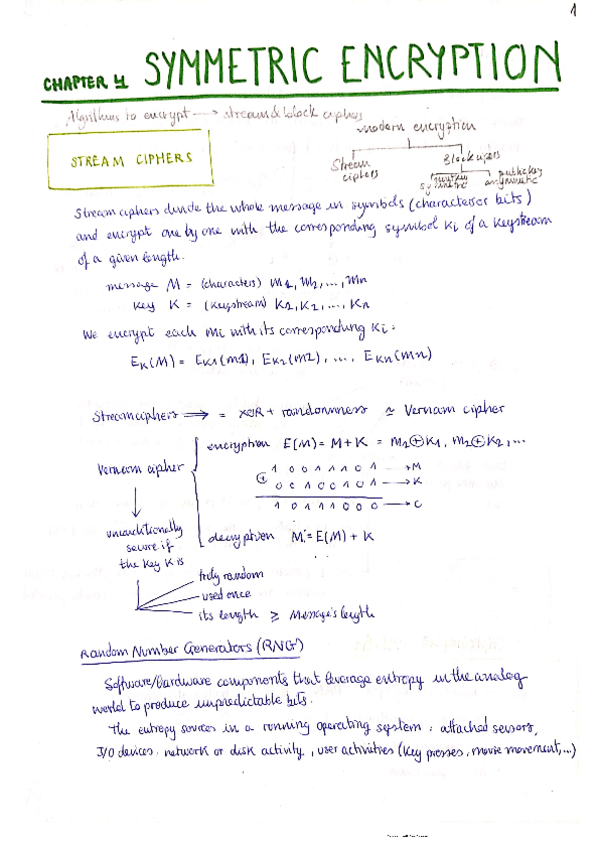 1
CHAPTER 4 SYMMETRIC ENCRYPTION
Algorithms to encrypt → stream & block ciphers
modern encryption
STREAM CIPHERS
Stream ciphers
Block ciphers
symmetric
public key asymmetric
Stream ciphers divide the whole message in symbols (characters or bits)
and encrypt one by one with the corresponding symbol Ki of a Keystream
of a given length.
message M = (characters) m1, m2, ..., mn
Key K = (Keystream) K1, K2, ..., Kn
We encrypt each mi with its corresponding Ki:
EK(M) = EK1(m1), EK2(m2), ..., EKn(mn)
Stream ciphers ⟹ = XOR + randomness ≃ Vernam cipher
encryption E(M) = M + K = m1⊕K1, m2⊕K2, ...
Vernam cipher
1 0 0 1 1 1 0 1 → M
⊕ 0 0 1 0 0 1 0 1 → K
1 0 1 1 1 0 0 0 → C
decryption M = E(M) + K
unconditionally
secure if
the Key K is
truly random
used once
its length ≥ Message's length
Random Number Generators (RNG)
Software/Hardware components that leverage entropy in the analog
world to produce unpredictable bits.
The entropy sources in a running operating system: attached sensors,
I/O devices, network or disk activity, user activities (Key presses, mouse movement, ...)